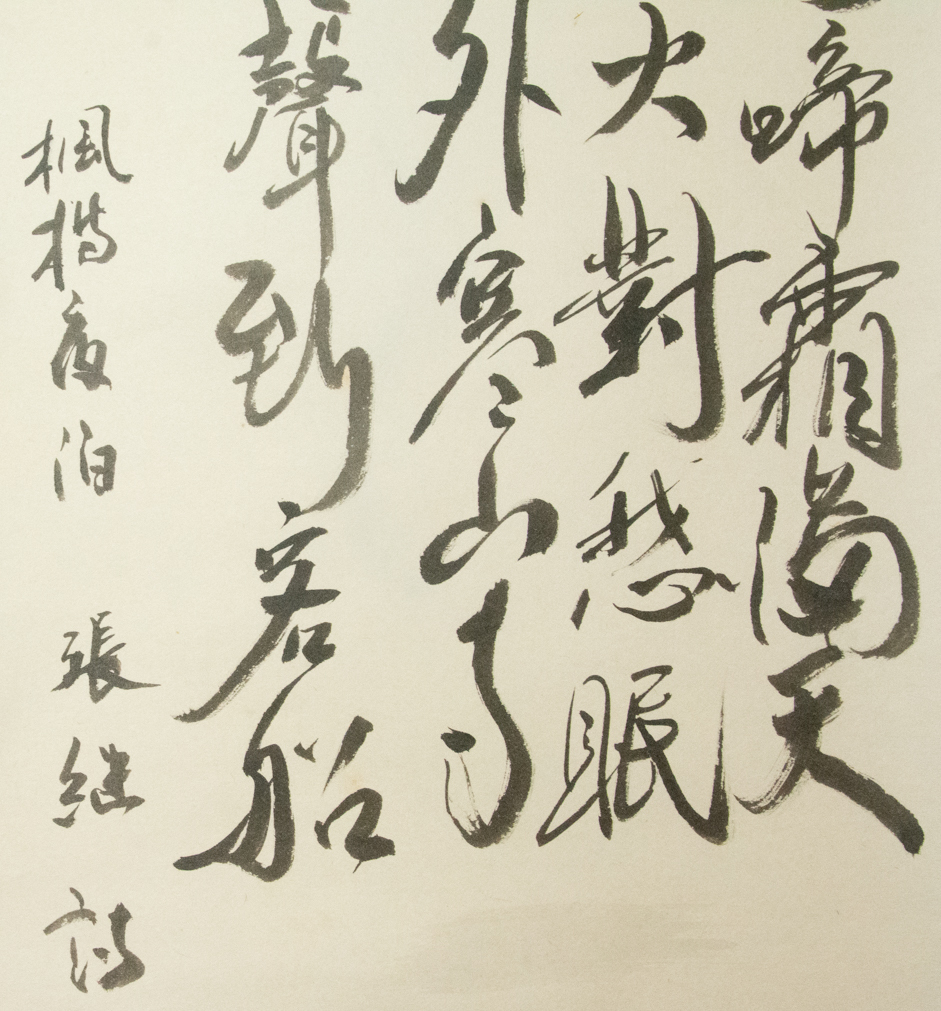 啼霜滿天
火對愁眠
外寒山寺
聲到客船
楓橋夜泊 張継詩